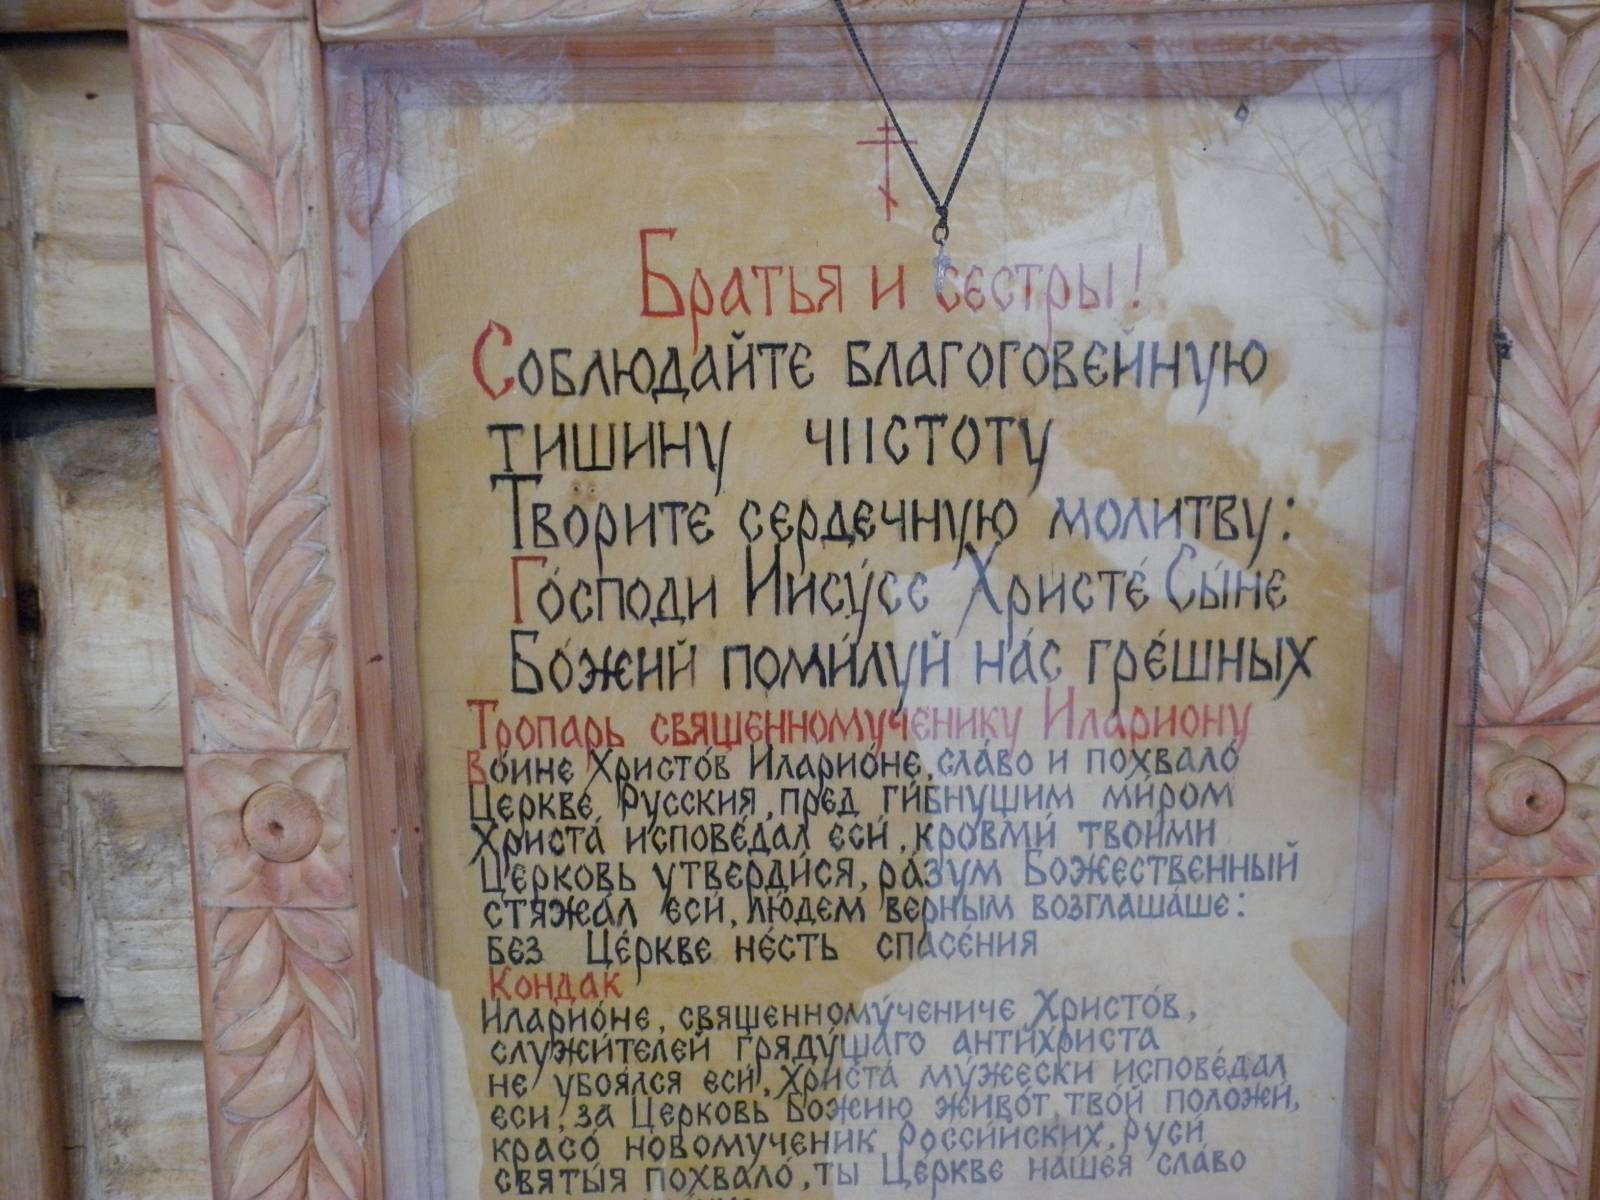 Братья и сестры!
Соблюдайте благоговейную
тишину чистоту
Творите сердечную молитву:
Го́споди Иису́се Христе́ Сы́не
Бо́жий поми́луй на́с гре́шных
Тропарь священномученику Илариону
Во́ине Христо́в Иларио́не, сла́во и похвало́
Церкве Русския, пред ги́бнущим ми́ром
Христа́ испове́дал еси́, кровми́ твои́ми
Це́рковь утверди́ся, ра́зум Божественный
стяжа́л еси́, людем верным возглаша́ше:
без Це́ркве не́сть спасе́ния
Кондак
Иларио́не, священному́чениче Христо́в,
служи́телей гряду́щаго анти́христа
не убоя́лся еси́, Христа́ му́жески испове́дал
еси́, за Церковь Божию живо́т тво́й положи́,
красо́ новомученик Росси́йских, Руси́
святы́я похвало́, ты Це́ркве на́шея сла́во